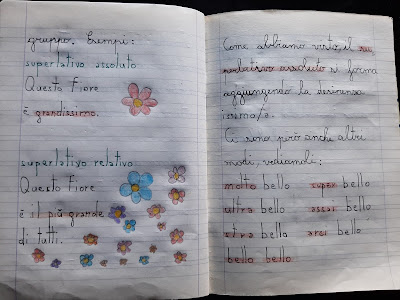 gruppo. Esempi:
superlativo assoluto
Questo fiore
è grandissimo.
superlativo relativo
Questo fiore
è il più grande
di tutti.
Come abbiamo visto, il su
perlativo assoluto si forma
aggiungendo la desinenza
issimo/a.
Ci sono però anche altri
modi, vediamoli:
molto bello super bello
ultra bello assai bello
stra bello arci bello
bello bello